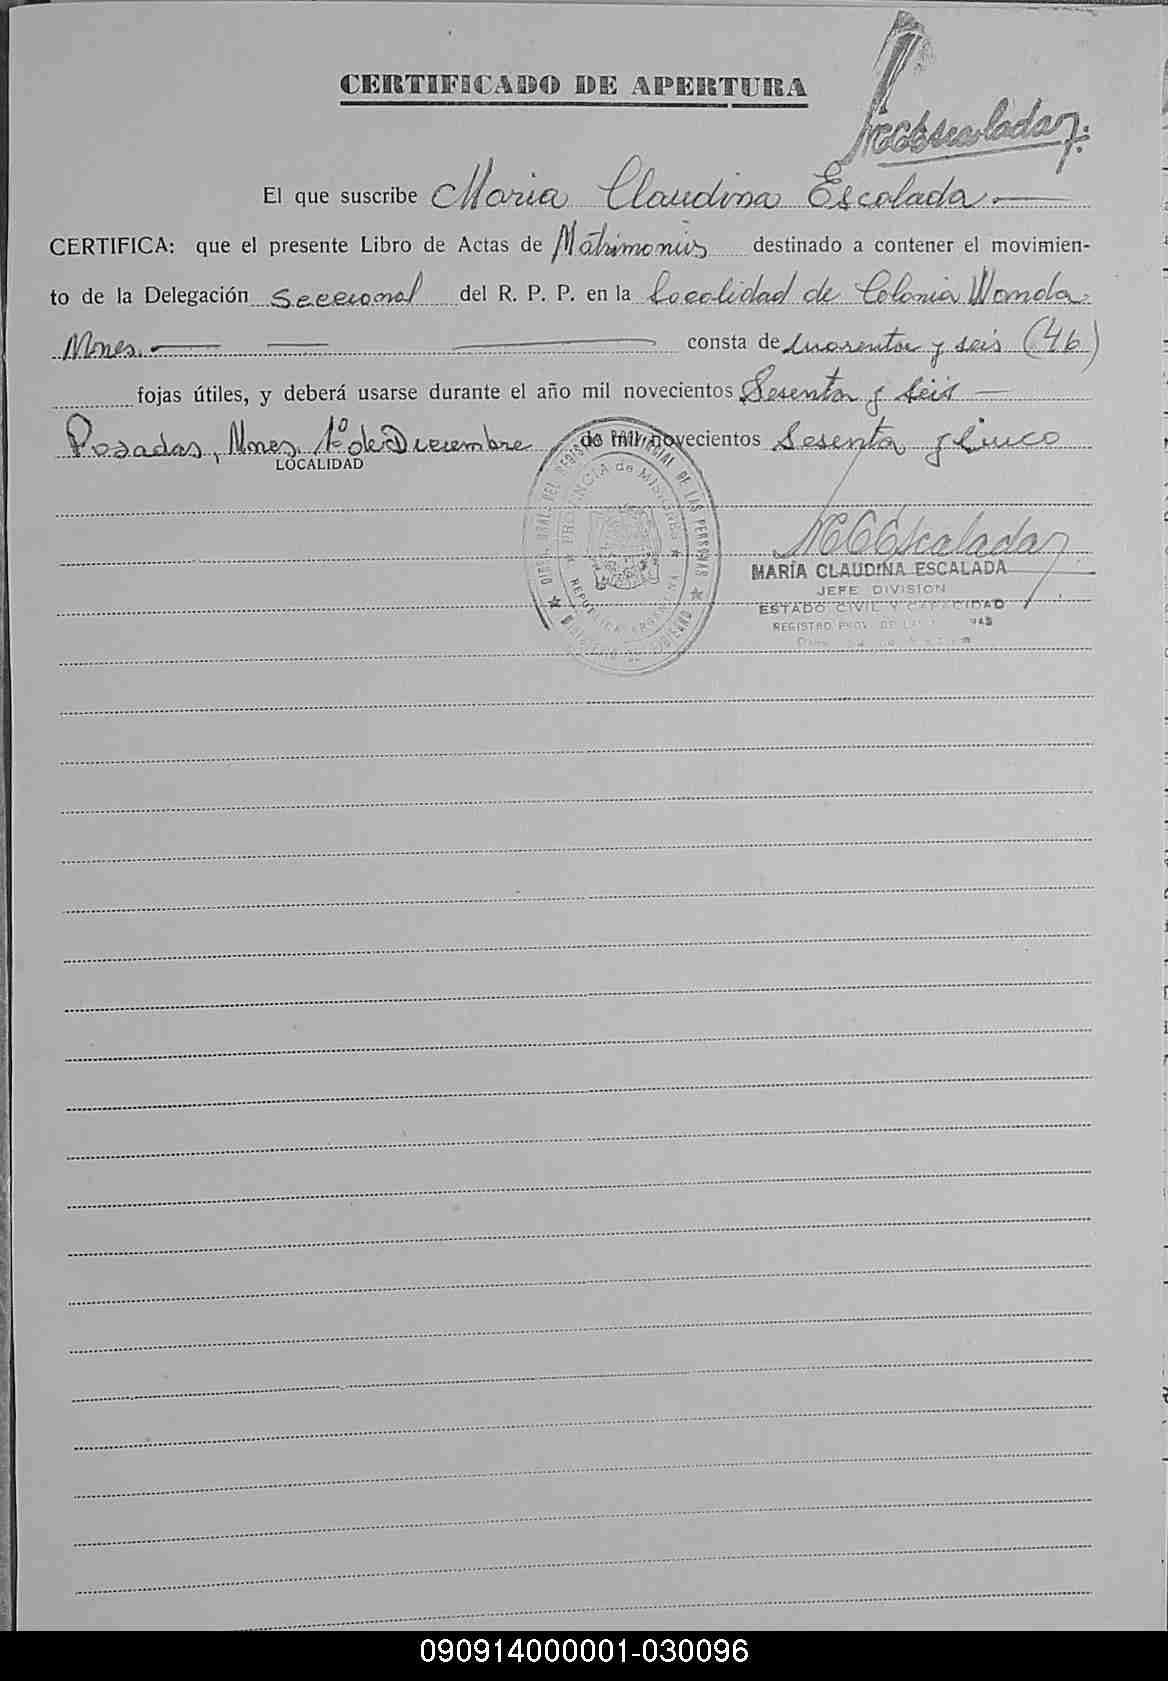 CERTIFICADO DE APERTURA
MCEscalada
El que suscribe Maria Claudina Escalada.
CERTIFICA: que el presente Libro de Actas de Matrimonios destinado a contener el movimien-
to de la Delegación Seccional del R. P. P. en la Localidad de Colonia Wanda
Mnes. consta de cuarenta y seis (46)
fojas útiles, y deberá usarse durante el año mil novecientos Sesenta y Seis
Posadas, Mnes. 1º de Diciembre de mil novecientos Sesenta y Cinco
LOCALIDAD
PROVINCIA de MISIONES
REPUBLICA ARGENTINA
MCEscalada
MARÍA CLAUDINA ESCALADA
JEFE DIVISION
ESTADO CIVIL Y CAPACIDAD
REGISTRO PROV. DE LAS
090914000001-030096